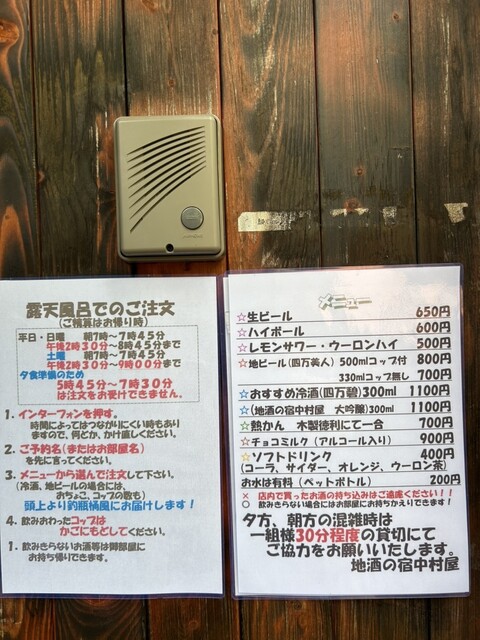 露天風呂でのご注文
(ご精算はお帰り時)
平日・日曜 朝7時~7時45分
午後2時30分~8時45分まで
土曜 朝7時~7時45分
午後2時30分~9時00分まで
夕食準備のため
5時45分~7時30分
は注文をお受けできません。
1. インターフォンを押す。
時間によってはつながりにくい時もあり
ますので、何どか、かけ直しください。
2. ご予約名(またはお部屋名)
を先に言ってください。
3. メニューから選んで注文して下さい。
(冷酒、地ビールの場合には、
おちょこ、コップの数も)
頭上より釣瓶桶風にお届けします!
4. 飲みおわったコップは
かごにもどしてください。
1. 飲みきらないお酒等は御部屋に
お持ち帰りできます。
メニュー
☆生ビール 650円
☆ハイボール 600円
☆レモンサワー・ウーロンハイ 500円
☆地ビール(四万美人) 500mlコップ付 800円
330mlコップ無し 700円
☆おすすめ冷酒(四万碧)300ml 1100円
☆(地酒の宿中村屋 大吟醸)300ml 1100円
☆熱かん 木製徳利にて一合 700円
☆チョコミルク (アルコール入り) 900円
☆ソフトドリンク 400円
(コーラ、サイダー、オレンジ、ウーロン茶)
お水は有料 (ペットボトル) 200円
× 店内で買ったお酒の持ち込みはご遠慮ください!!
○ 飲みきらない場合にはお部屋にお持ちかえりできます!
夕方、朝方の混雑時は
一組様30分程度の貸切にて
ご協力をお願いいたします。
地酒の宿中村屋